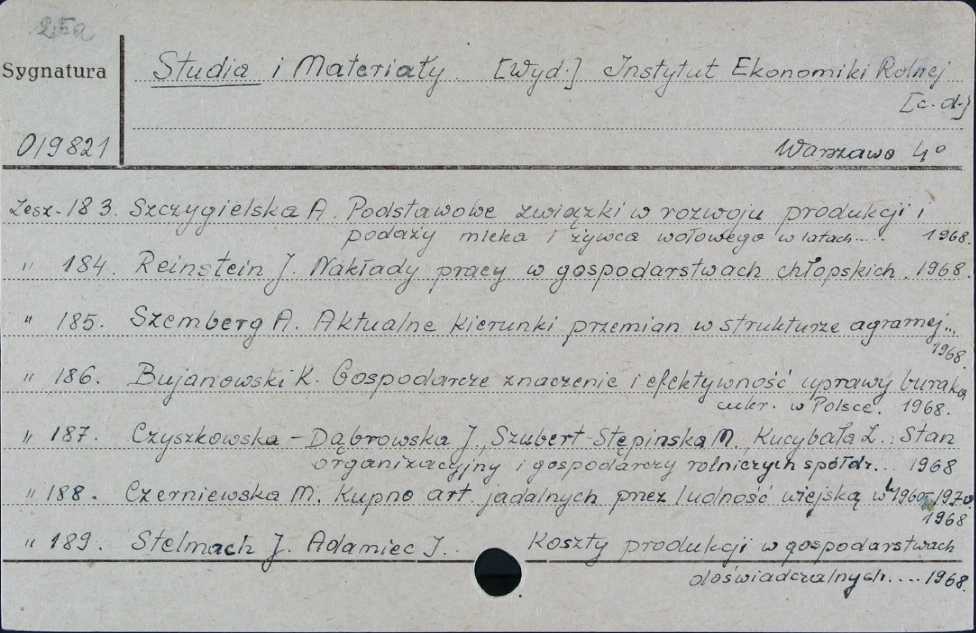 25a
Sygnatura
Studia i Materiały. [Wyd.] Instytut Ekonomiki Rolnej
[c.d.]
0/9821
Warszawa 4°
Zesz. 183. Szczygielska A. Podstawowe związki w rozwoju produkcji i
podaży mleka i żywca wołowego w latach.... 1968.
" 184. Reinstein J. Nakłady pracy w gospodarstwach chłopskich. 1968.
" 185. Szemberg A. Aktualne kierunki przemian w strukturze agrarnej...
1968.
" 186. Bujanowski K. Gospodarcze znaczenie i efektywność uprawy buraka
cukr. w Polsce. 1968.
" 187. Czyszkowska-Dąbrowska J., Szubert-Stępinska M., Kucybała Z.: Stan
organizacyjny i gospodarczy rolniczych spółdz... 1968
" 188. Czerniewska M. Kupno art. jadalnych przez ludność wiejską w l. 1960-1970
1968
" 189. Stelmach J. Adamiec J.. Koszty produkcji w gospodarstwach
doświadczalnych.... 1968.